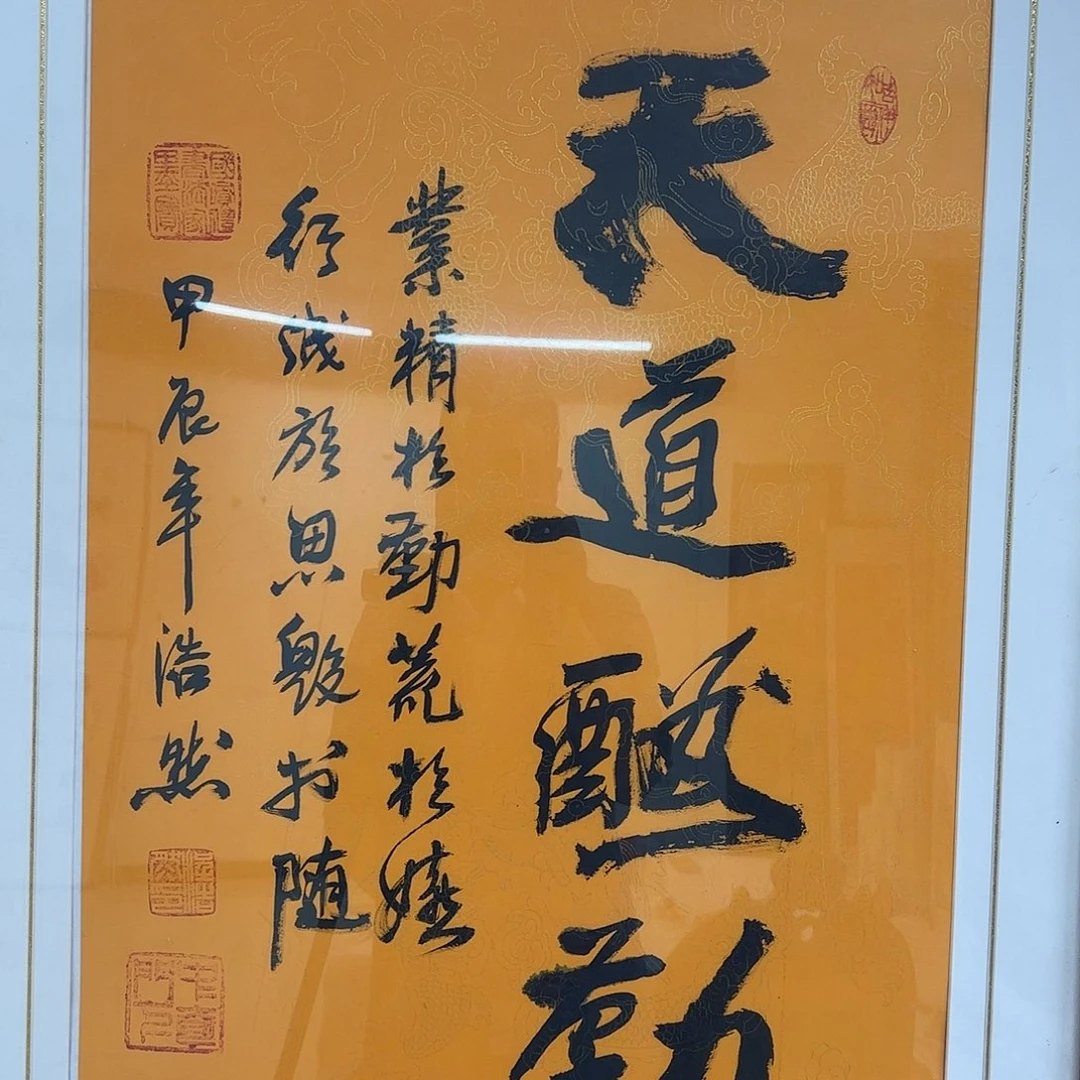 天道酬勤
業精於勤荒於嬉
行成於思毀於随
甲辰年浩然